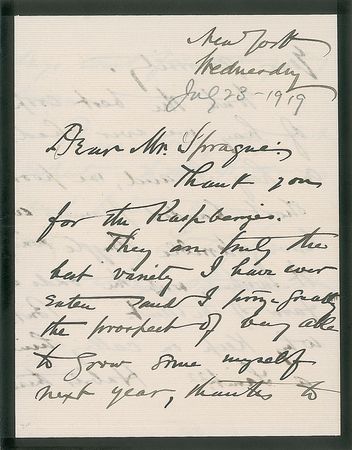 New York
Wednesday
July 23 - 1919
Dear Mr. Sprague:
Thank you
for the Raspberries.
They are truly the
best variety I have ever
eaten and I prize greatly
the prospect of being able
to grow some myself
next year, thanks to